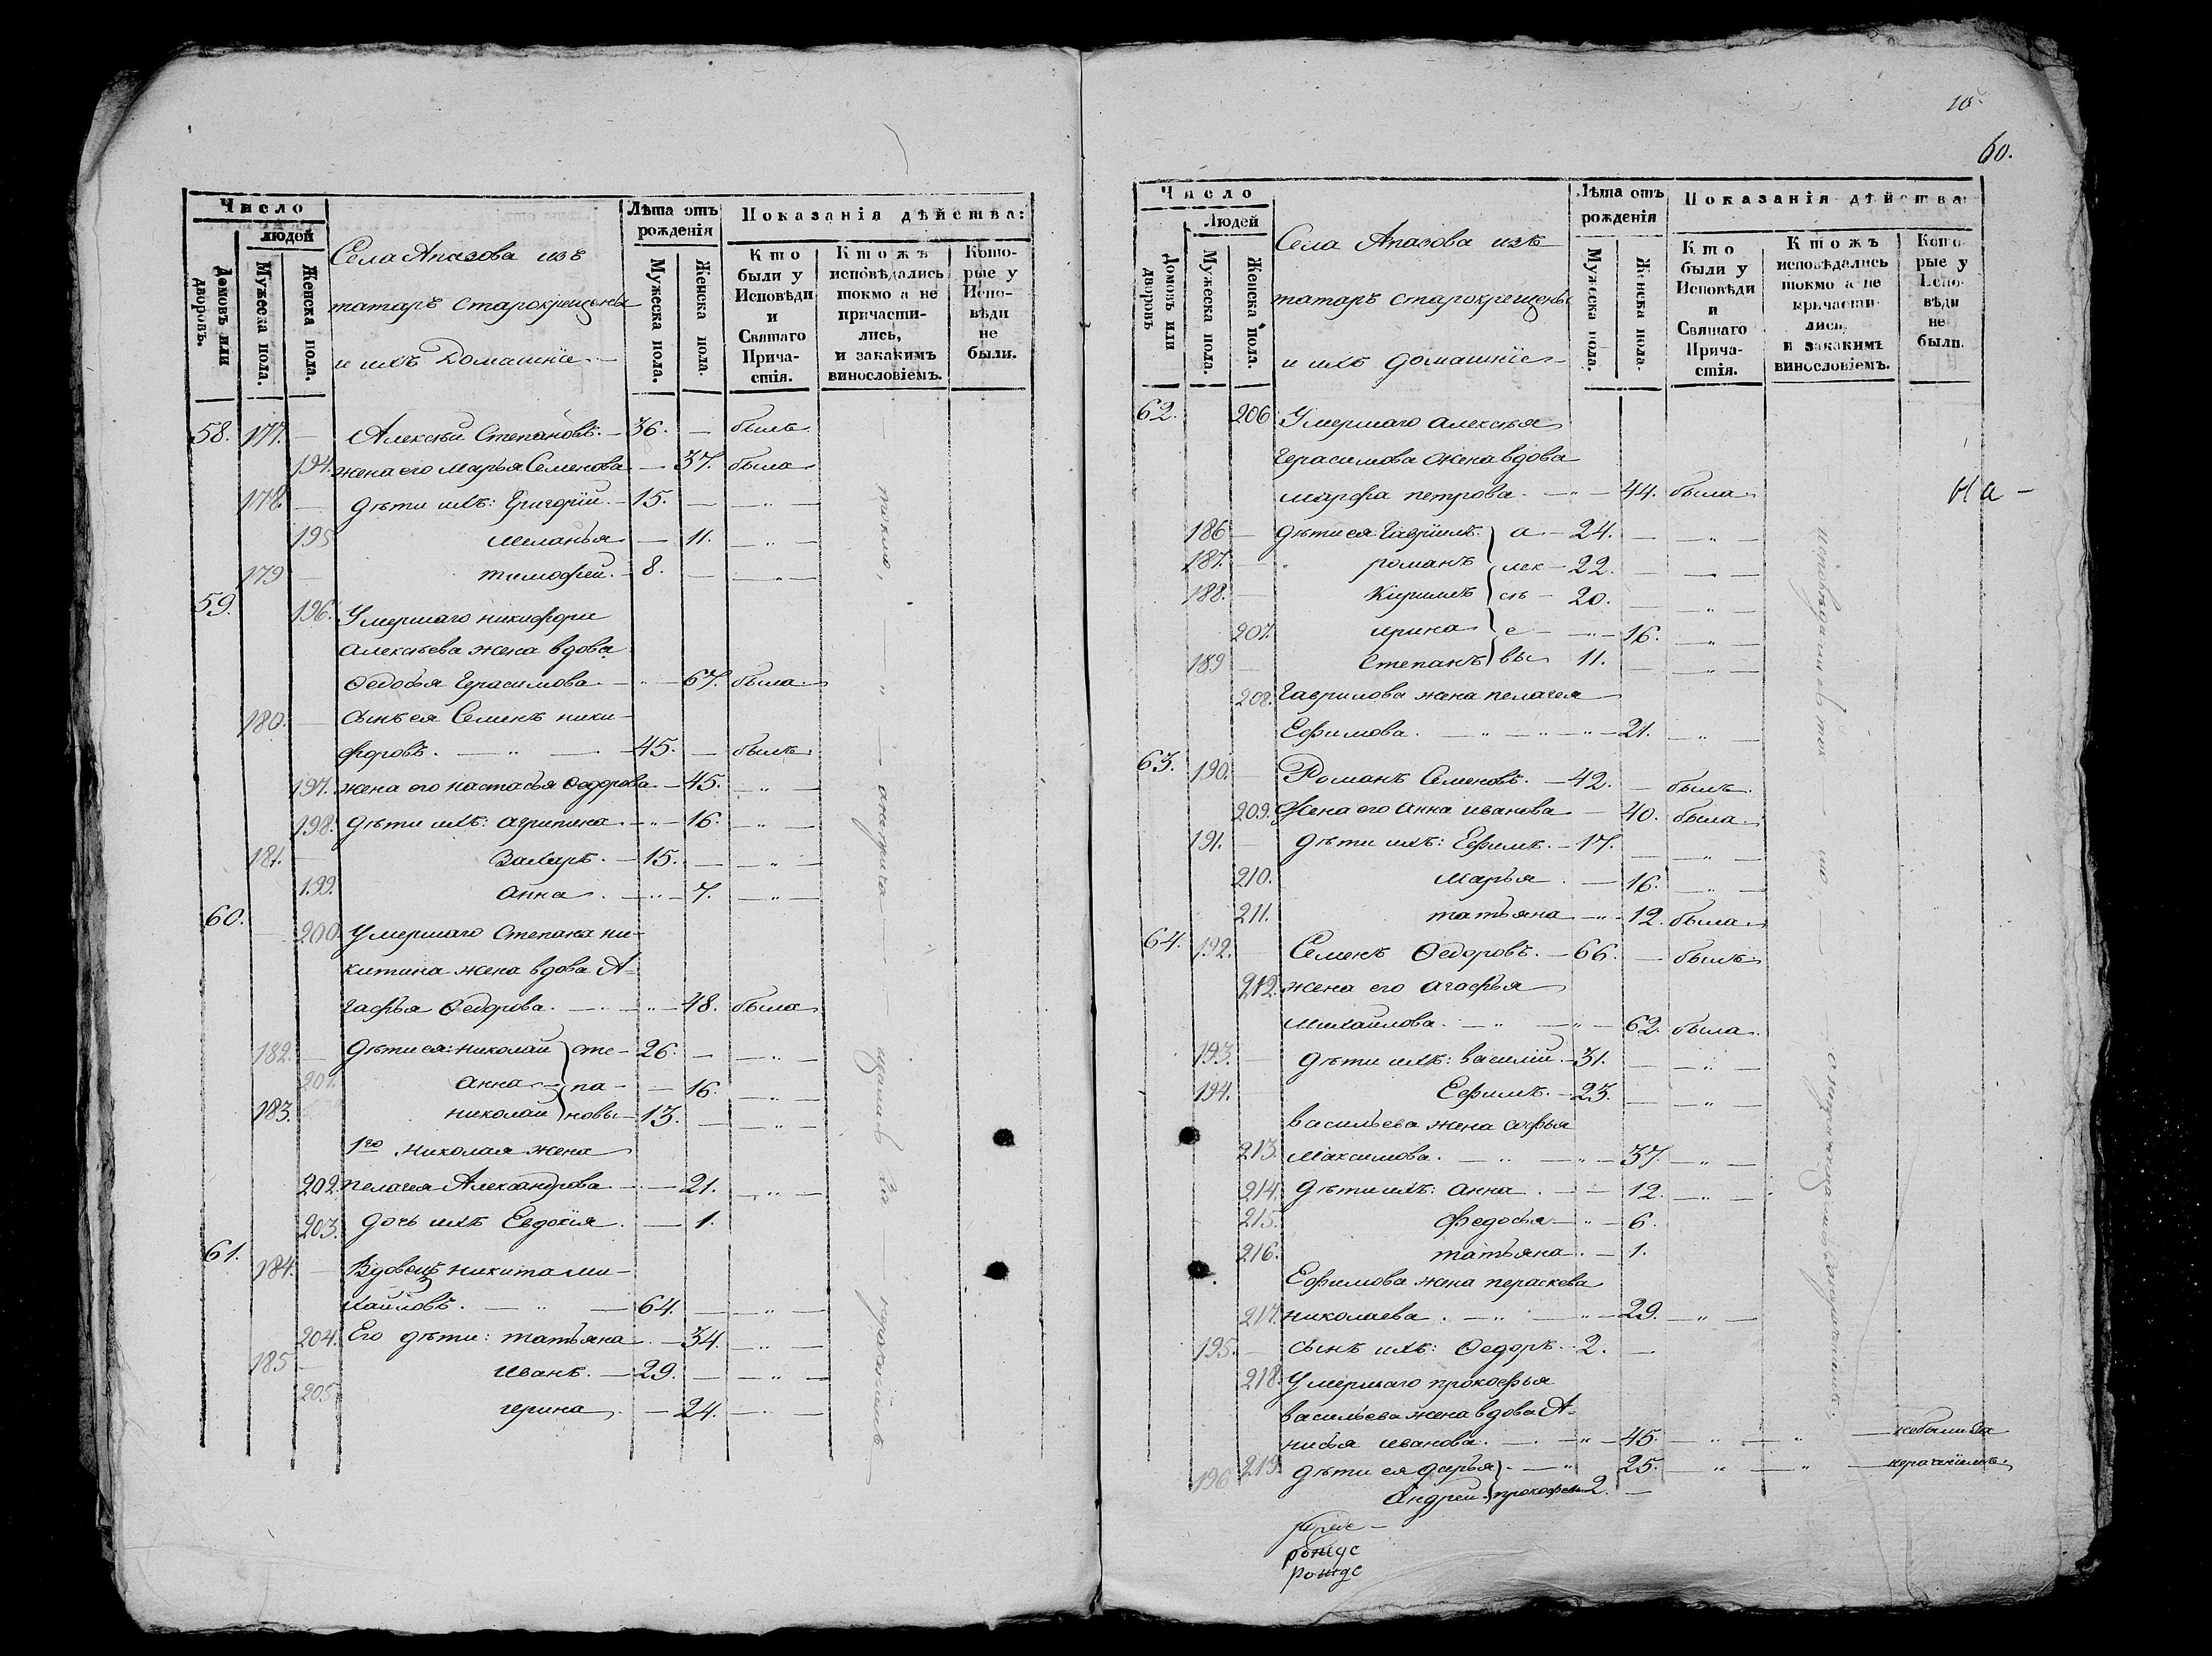 Число
людей
Домовъ или дворовъ.
Мужеска пола.
Женска пола.
Села Апазова изъ
татаръ старокрещены
и ихъ Домашніе
Лѣта отъ рожденія
Мужеска пола.
Женска пола.
Показанія дѣйства:
Кто были у Исповѣди и Святаго Прича-стія.
Ктожъ исповѣдались токмо а не причасти-лись, и закакимъ винословіемъ.
Кото-рые у Испо-вѣди не были.
58. 177. — Алексѣй Степановъ. — 36. — былъ
194. жена его Марья Семенова — 37. была
178. — дѣти ихъ: Григорій — 15. — — „ —
195 Меланья — 11. — „ —
179 — тимофей. — 8. — — „ —
59. 196. Умершаго никифора
Алексѣева жена вдова
Ѳедосья Герасимова — „ — 67. была
180. — Сынъ ея Семенъ ники-
форовъ. — „ — 45. — былъ
197. жена его настасья Ѳедорова — 45. — „ —
198. дѣти ихъ: агрипина — „ — 16. — „ —
181. — Захаръ. — 15. — — „ —
199. анна. — „ — 7. — „ —
60. — 200. Умершаго Степана ни-
китина жена вдова А-
гафья Ѳедорова. — „ — 48. была
182. — дѣти ея: николай } сте- 26. — — „ —
201. анна } па- — 16. — „ —
183. николай } новы — 13. — — „ —
1го николая жена
202. пелагея Александрова — — 21. — „ —
203. дочь ихъ Евдокія. — 1.
61. 184. — Вдовецъ никита ми-
хайловъ. — „ — 64. — — „ —
204. Его дѣти: татьяна — 34. — „ —
185 — иванъ. — 29. — — „ —
205. ирина — 24. — „ —
10
60.
Число
Людей
Домовъ или дворовъ
Мужеска пола.
Женска пола.
Села Апазова изъ
татаръ старокрещены
и ихъ домашніе
Лѣта отъ рожденія
Мужеска пола.
Женска пола.
Показанія дѣйства
Кто были у Исповѣди и Святаго Прича-стія.
Ктожъ исповѣдались токмо а не причасти-лись, и закакимъ винословіемъ.
Кото-рые у Испо-вѣди не были.
62. 206 Умершаго алексѣя
Герасимова жена вдова
марфа петрова. — „ — 44. была
На —
186 — дѣти ея: Гаврилъ } а — 24. — — „ —
187. — романъ } лек — 22. — „ —
188. — Кирилъ } сѣ — 20. — — „ —
207. ирина } е — „ — 16. — „ —
189 — Степанъ } вы 11. — — „ —
208. Гаврилова жена пелагея
Ефимова. — „ — „ — „ — 21. — „ —
63. 190. — Романъ Семеновъ. — 42. — былъ
209. Жена его Анна иванова — 40. была
191. — дѣти ихъ: Ефимъ. — 17. — — „ —
210. Марья — 16. — „ —
211. татьяна — „ — 12. была
64. 192. — Семенъ Ѳедоровъ. — 66. — былъ
212. жена его агафья
михайлова. — „ — „ — 62. была
193. — дѣти ихъ: василій — 31. — — „ —
194. — Ефимъ. — 23. — — „ —
васильева жена софья
213. Максимова. — „ — „ — 37. — „ —
214. дѣти ихъ: анна. — — 12. — „ —
215. Федосья — „ — 6.
216. татьяна. — 1.
Ефимова жена параскева
217. николаева. — „ — „ — 29. — „ —
195. — сынъ ихъ: Ѳедоръ. — 2. —
218. Умершаго прокофья
васильева жена вдова А-
нисья иванова. — „ — 45. — „ — „ — небыли за
196 219. дѣти ея дарья } — „ 25. — „ — „ — нераченіемъ
Андрей } прокофьевы 2. —